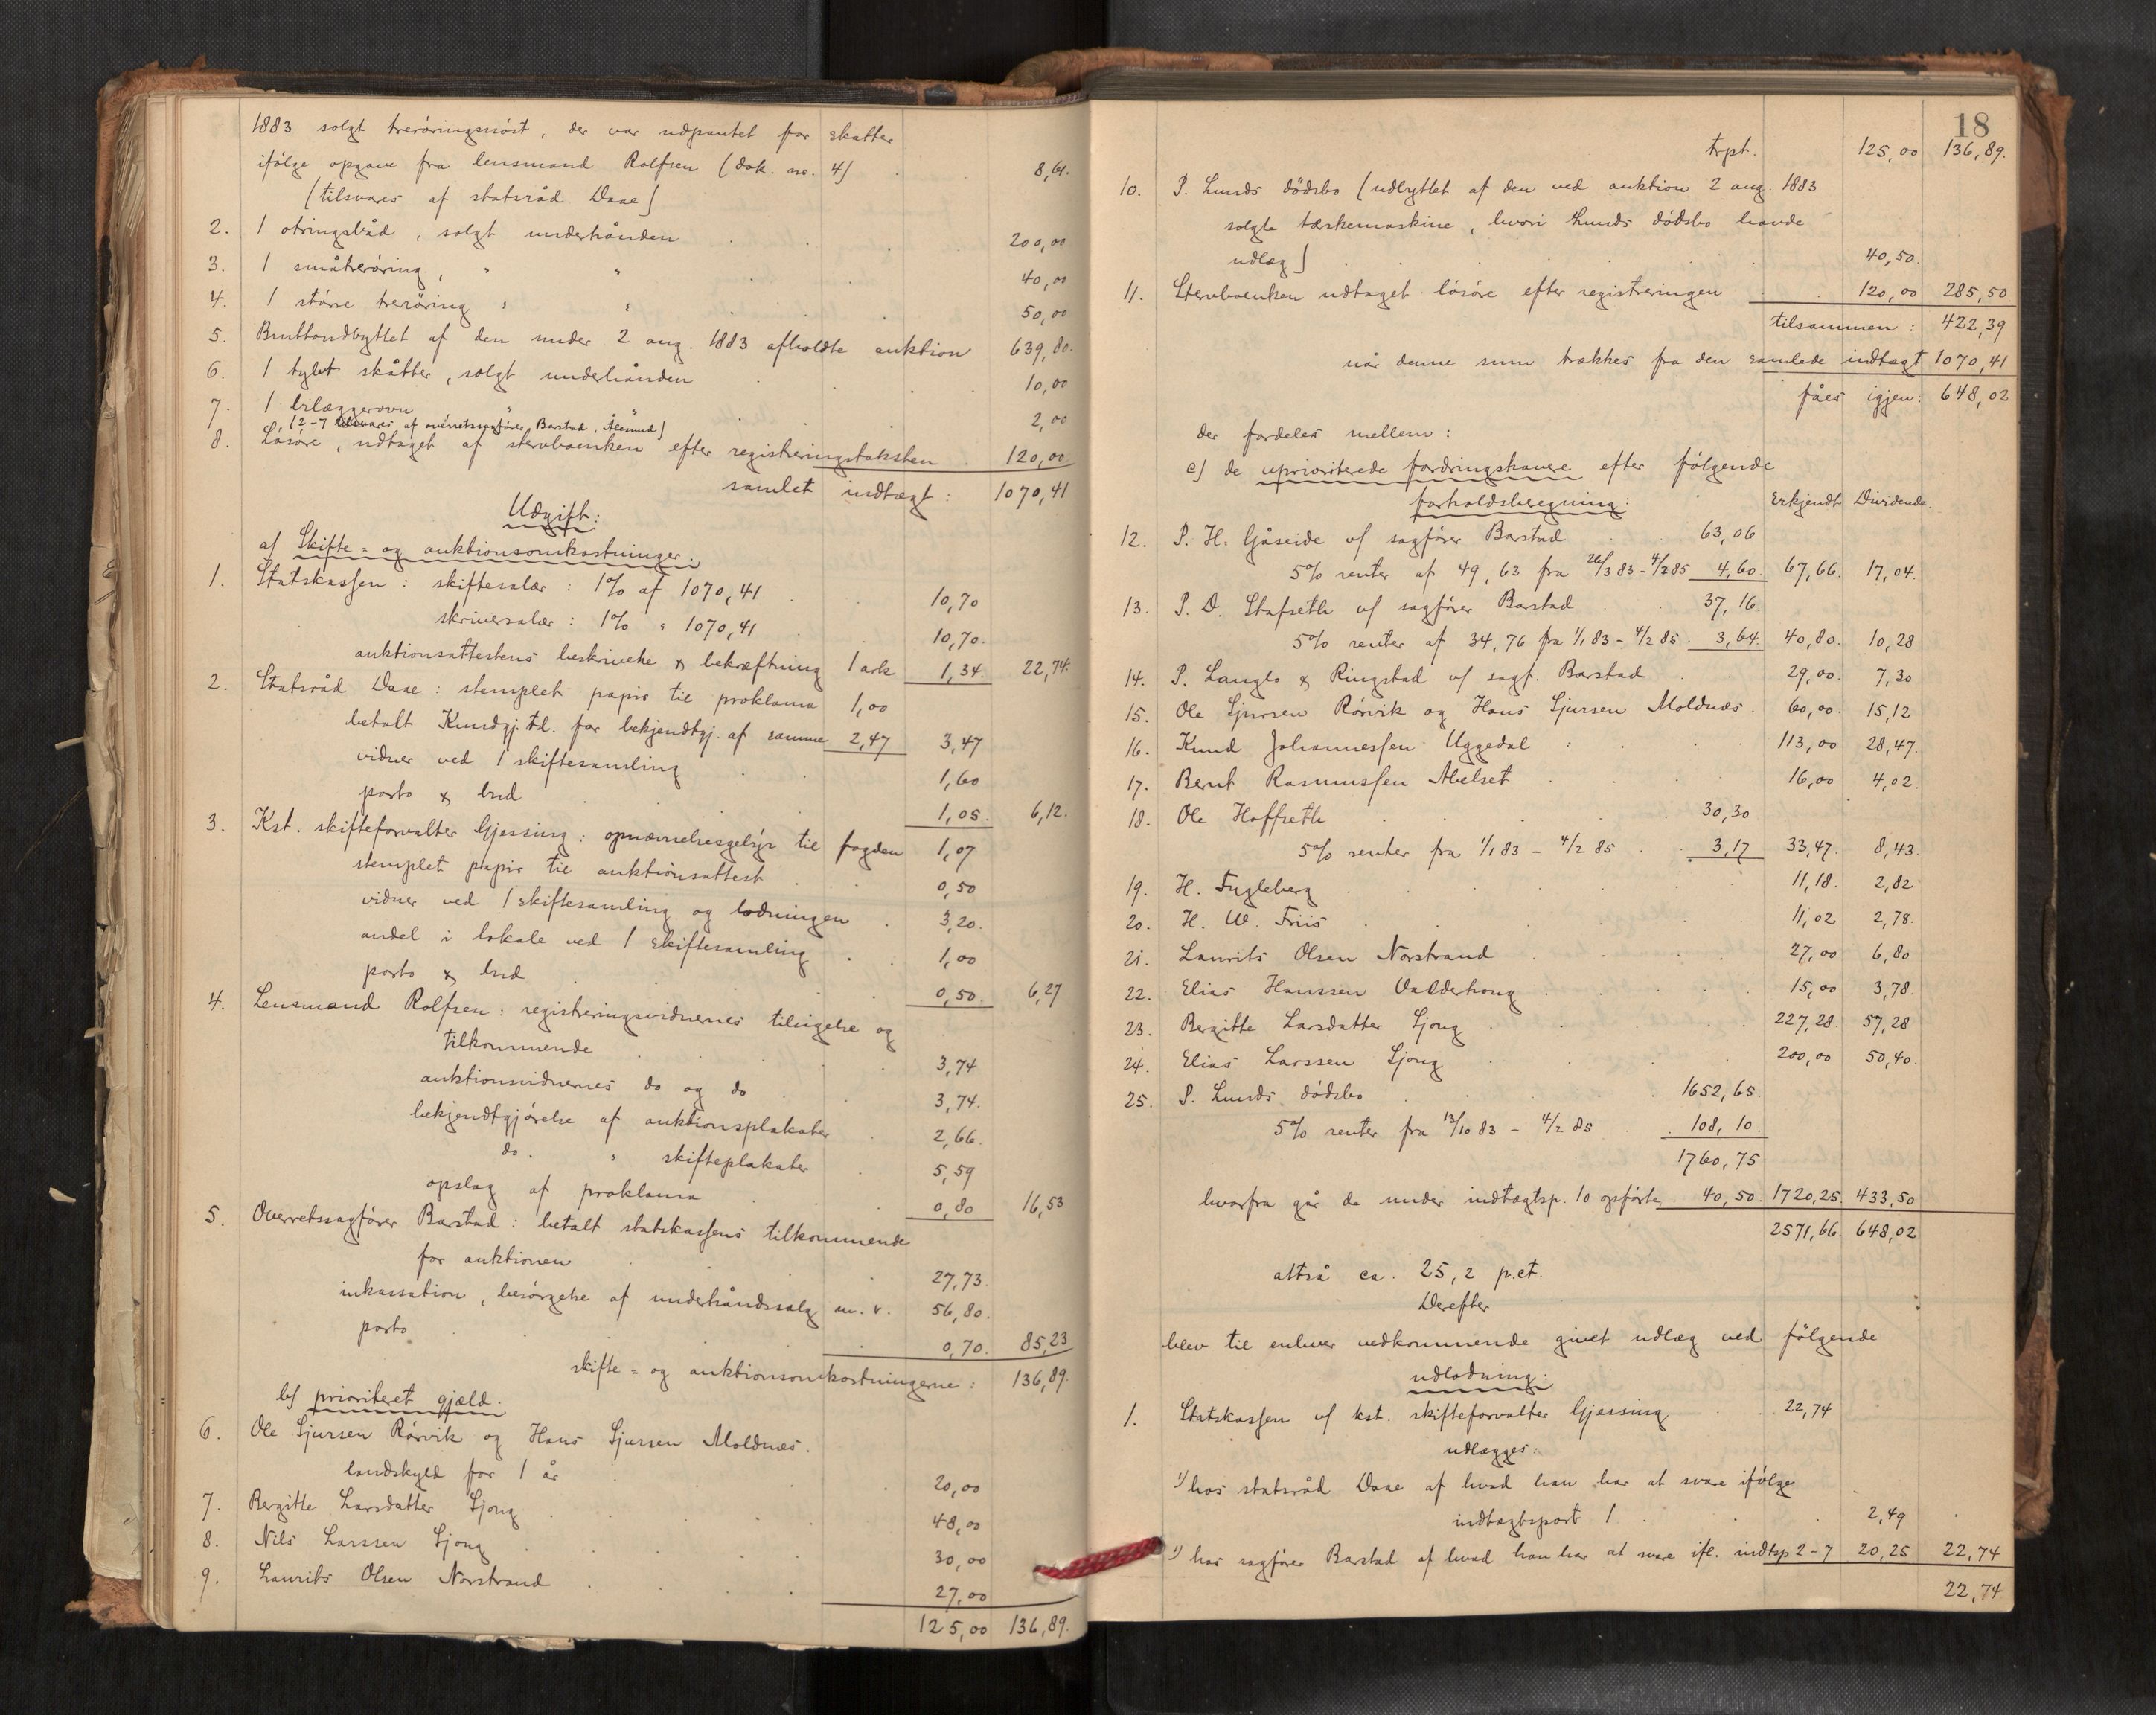 1883 solgt treröringsnöst, der var udpantet for skatter
ifölge opgave fra lensmand Rolfsen (dok. no. 4) 8,61.
(tilsvares af statsråd Daae)
2. 1 otringsbåd, solgt underhånden 200,00
3. 1 småtreröring, " " 40,00
4. 1 större treröring " " 50,00
5. Bruttoudbyttet af den under 2 aug. 1883 afholdte auktion 639,80.
6. 1 tylvt skåtter, solgt underhånden 10,00
7. 1 bilæggerovn " 2,00
(2-7 tilsvares af overretssagförer Barstad, Ålesund)
8. Lösöre, udtaget af stervboenken efter registreringstaksten 120,00
samlet indtægt: 1070,41
Udgift:
a) Skifte- og auktionsomkostninger.
1. Statskassen: skiftesalær: 1% af 1070,41 10,70
skriversalær: 1% " 1070,41 10,70.
auktionsattestens beskrivelse & bekræftning 1 ark 1,34. 22,74.
2. Statsråd Daae: stemplet papir til proklama 1,00
betalt Kundgj.td. for bekjendtgj. af samme 2,47 3,47
vidner ved 1 skiftesamling 1,60
porto & bud 1,05. 6,12.
3. Kst. skifteforvalter Gjessing: opnævnelsesgebyr til fogden 1,07
stemplet papir til auktionsattest 0,50
vidner ved 1 skiftesamling og lodningen 3,20.
andel i lokale ved 1 skiftesamling 1,00
porto & bud 0,50. 6,27
4. Lensmand Rolfsen: registreringsvidnernes tilsigelse og
tilkommende 3,74
auktionsvidnernes do og do 3,74.
bekjendtgjörelse af auktionsplakater 2,66.
do. " skifteplakater 5,59
opslag af proklama 0,80 16,53
5. Overretssagförer Barstad: betalt statskassens tilkommende
for auktionen 27,73.
inkassation, besörgelse af underhåndssalg m. v. 56,80.
porto 0,70. 85,23
skifte- og auktionsomkostningerne: 136,89.
b) prioriteret gjæld.
6. Ole Sjursen Rörvik og Hans Sjursen Moldnæs.
landskyld for 1 år 20,00
7. Bergitte Larsdatter Ljong 48,00
8. Nils Larssen Ljong 30,00
9. Laurits Olsen Norstrand 27,00
125,00 136,89.
18
trpt. 125,00 136,89.
10. P. Lunds dödsbo (udbyttet af den ved auktion 2 aug. 1883
solgte tærskemaskine, hvori Lunds dödsbo havde
udlæg) 40,50.
11. Stervboenken udtaget lösöre efter registreringen 120,00 285,50
tilsammen: 422,39
når denne sum trækkes fra den samlede indtægt 1070,41
fåes igjen: 648,02
der fordeles mellem:
c) de uprioriterede fordringshavere efter fölgende
forholdsberegning: Erkjendt Dividende.
12. P. H. Gåseide v/ sagförer Barstad 63,06
5% renter af 49,63 fra 26/3 83 - 4/2 85 4,60. 67,66. 17,04.
13. P. D. Stafseth v/ sagförer Barstad 37,16.
5% renter af 34,76 fra 1/1 83 - 4/2 85. 3,64. 40,80. 10,28
14. P. Langlo & Ringstad v/ sagf. Barstad 29,00. 7,30
15. Ole Sjursen Rörvik og Hans Sjursen Moldnæs. 60,00. 15,12
16. Knud Johannessen Uggedal 113,00 28,47.
17. Bernt Rasmussen Abelset 16,00 4,02.
18. Ole Hoffseth 30,30
5% renter fra 1/1 83 - 4/2 85 3,17 33,47. 8,43.
19. H. Fugleberg 11,18. 2,82
20. H. W. Friis 11,02 2,78.
21. Laurits Olsen Norstrand 27,00 6,80
22. Elias Hanssen Valderhoug 15,00 3,78.
23. Bergitte Larsdatter Ljong 227,28. 57,28
24. Elias Larssen Ljong 200,00 50,40.
25. P. Lunds dödsbo 1652,65.
5% renter fra 13/10 83 - 4/2 85 108,10.
1760,75
hvorfra går de under indtægtsp. 10 opförte 40,50. 1720,25. 433,50
2571,66. 648,02
altså ca. 25,2 p.ct.
Derefter
blev til enhver vedkommende givet udlæg ved fölgende
udlodning:
1. Statskassen v/ kst. skifteforvalter Gjessing 22,74
udlægges:
1) hos statsråd Daae af hvad han har at svare ifölge
indtægtspost 1 2,49
2) hos sagförer Barstad af hvad han har at svare ifl. indtsp 2-7 20,25 22,74
22,74